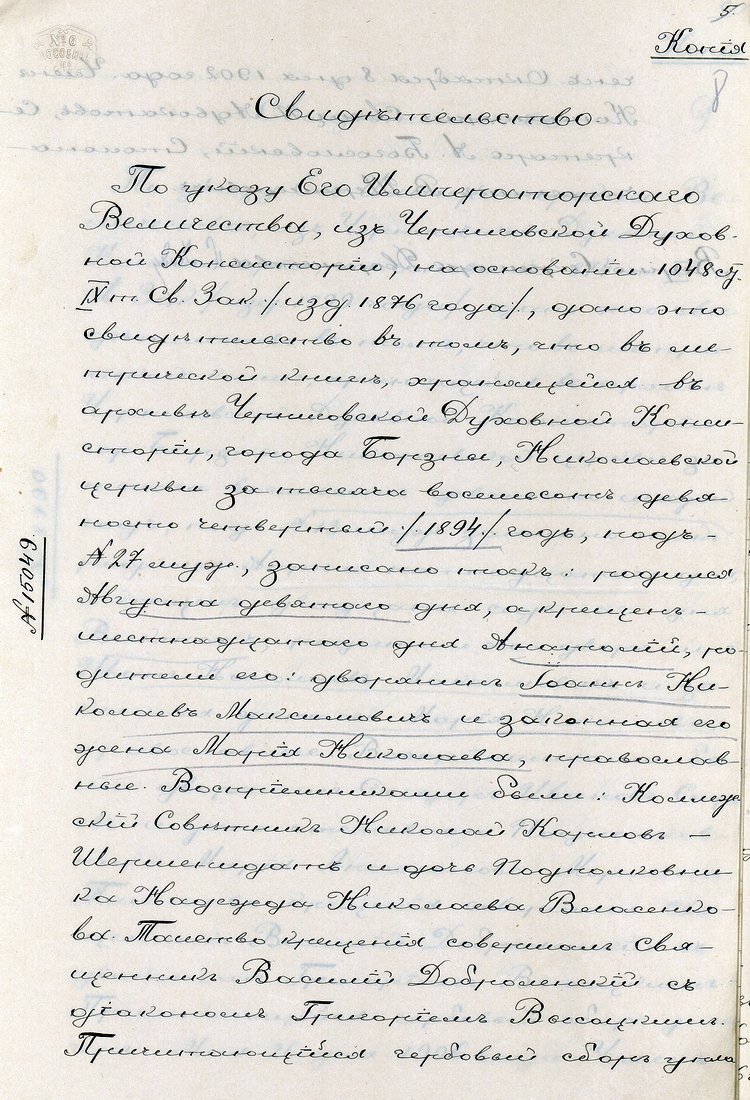 5.
Копія
8
Свидѣтельство
По указу Его Императорскаго
Величества, изъ Черниговской Духов-
ной Консисторіи, на основаніи 1048 ст.
IX т. Св. Зак. /изд. 1876 года/, дано это
свидѣтельство въ томъ, что въ ме-
трической книгѣ, хранящейся въ
архивѣ Черниговской Духовной Конси-
сторіи, города Борзны, Николаевской
церкви за тысяча восемьсотъ девя-
носто четвертый /1894/ годъ, подъ -
№ 27 муж., записано такъ: родился
Августа девятаго дня, а крещенъ -
шестнадцатаго дня Анатолій, ро-
дители его: дворянинъ Іоаннъ Ни-
колаевъ Максимовичъ и законная его
жена Марія Николаева, православ-
ные. Воспріемниками были: Коллеж-
скій Совѣтникъ Николай Карловъ -
Шерменидатъ и дочь Подполковни-
ка Надежда Николаева Власенко-
ва. Таинство крещенія совершалъ Свя-
щенникъ Василій Доброленскій съ
діакономъ Григоріемъ Высоцкимъ.
Причитающійся гербовый сборъ упла
№ 15049